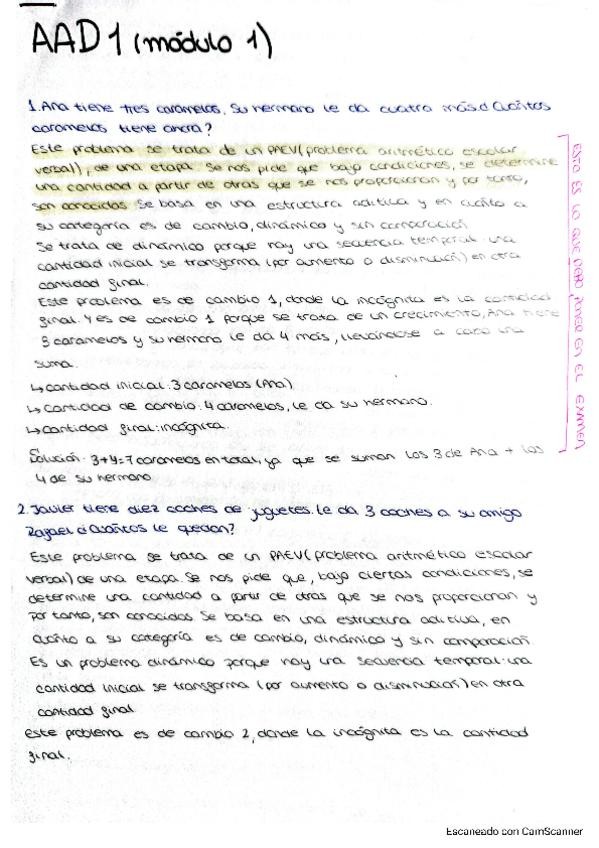 AAD 1 (módulo 1)
1. Ana tiene tres caramelos. Su hermano le da cuatro más. ¿Cuántos
caramelos tiene ahora?
Este problema se trata de un PAEV (problema aritmético escolar
verbal), de una etapa. Se nos pide que bajo condiciones, se determine
una cantidad a partir de otras que se nos proporcionan y por tanto,
son conocidas. Se basa en una estructura aditiva y en cuánto a
su categoría es de cambio, dinámico y sin comparación.
Se trata de dinámico porque hay una secuencia temporal: una
cantidad inicial se transforma (por aumento o disminución) en otra
cantidad final.
Este problema es de cambio 1, donde la incógnita es la cantidad
final. Y es de cambio 1 porque se trata de un crecimiento, Ana tiene
3 caramelos y su hermano le da 4 más, llevándose a cabo una
suma.
↳ Cantidad inicial: 3 caramelos (Ana).
↳ Cantidad de cambio: 4 caramelos, le da su hermano.
↳ Cantidad final: incógnita.
Solución: 3+4=7 caramelos en total, ya que se suman los 3 de Ana + los
4 de su hermano
ESTO ES LO QUE DEBO PONER EN EL EXAMEN
2. Javier tiene diez coches de juguetes. Le da 3 coches a su amigo
Rafael ¿Cuántos le quedan?
Este problema se trata de un PAEV (problema aritmético escolar
verbal) de una etapa. Se nos pide que, bajo ciertas condiciones, se
determine una cantidad a partir de otras que se nos proporcionan y
por tanto, son conocidas. Se basa en una estructura aditiva, en
cuánto a su categoría es de cambio, dinámico y sin comparación.
Es un problema dinámico porque hay una secuencia temporal: una
cantidad inicial se transforma (por aumento o disminución) en otra
cantidad final
Este problema es de cambio 2, donde la incógnita es la cantidad
final.
Escaneado con CamScanner